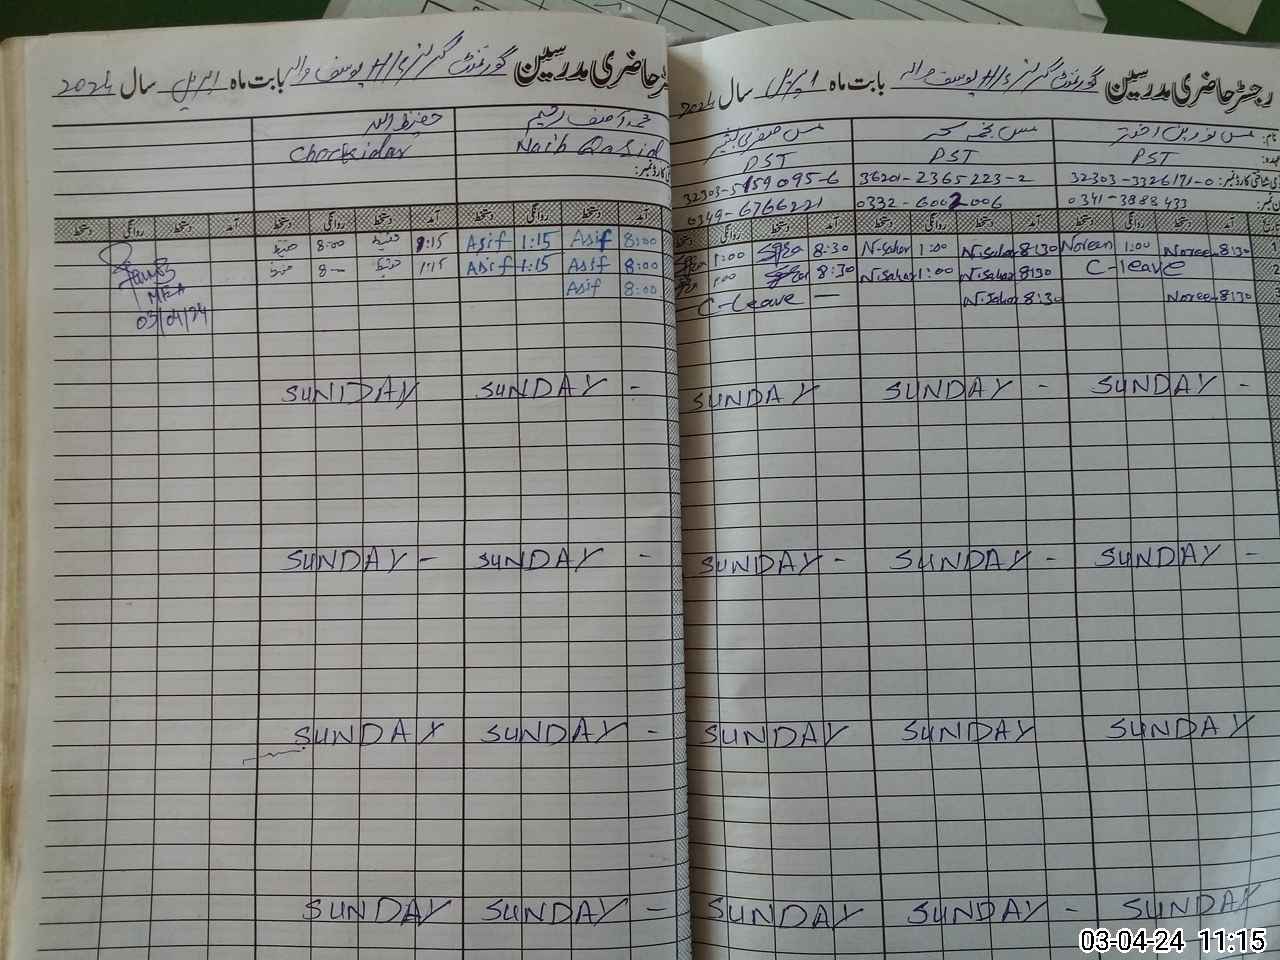 رجسٹر حاضری مدرسین گورنمنٹ گرلز H/S یوسف والہ بابت ماہ اپریل سال 2024
مس نورین اختر
مس نجمہ سحر
PST
PST
PST
32303-3326171-0
36201-2365223-2
32303-5159095-6
0341-3888433
0332-6002006
0349-6766221
آمد دستخط روانگی دستخط آمد دستخط روانگی دستخط آمد دستخط روانگی
8:30 Noreen 1:00 Noreen 8:30 N.Sahar 1:00 N.Sahar 8:30 1:00
C-leave 8:30 N.Sahar 1:00 N.Sahar 8:30 1:00
8:30 Noreen 8:30 N.Sahar — C-Leave
SUNDAY - SUNDAY - SUNDAY
SUNDAY - SUNDAY - SUNDAY -
SUNDAY SUNDAY SUNDAY
SUNDAY SUNDAY - SUNDAY
رجسٹر حاضری مدرسین گورنمنٹ گرلز H/S یوسف والہ بابت ماہ اپریل سال 2024
محمد آصف رحیم
حفیظ اللہ
Naib Qasid
Chockidar
آمد دستخط روانگی دستخط آمد دستخط روانگی دستخط آمد دستخط روانگی دستخط
8:00 Asif 1:15 Asif 1:15 حفیظ 8:00 حفیظ
8:00 Asif 1:15 Asif 1:15 حفیظ 8— حفیظ
8:00 Asif
MEA
03/04/24
SUNDAY - SUNDAY
SUNDAY - SUNDAY -
SUNDAY - SUNDAY
SUNDAY - SUNDAY
03-04-24 11:15